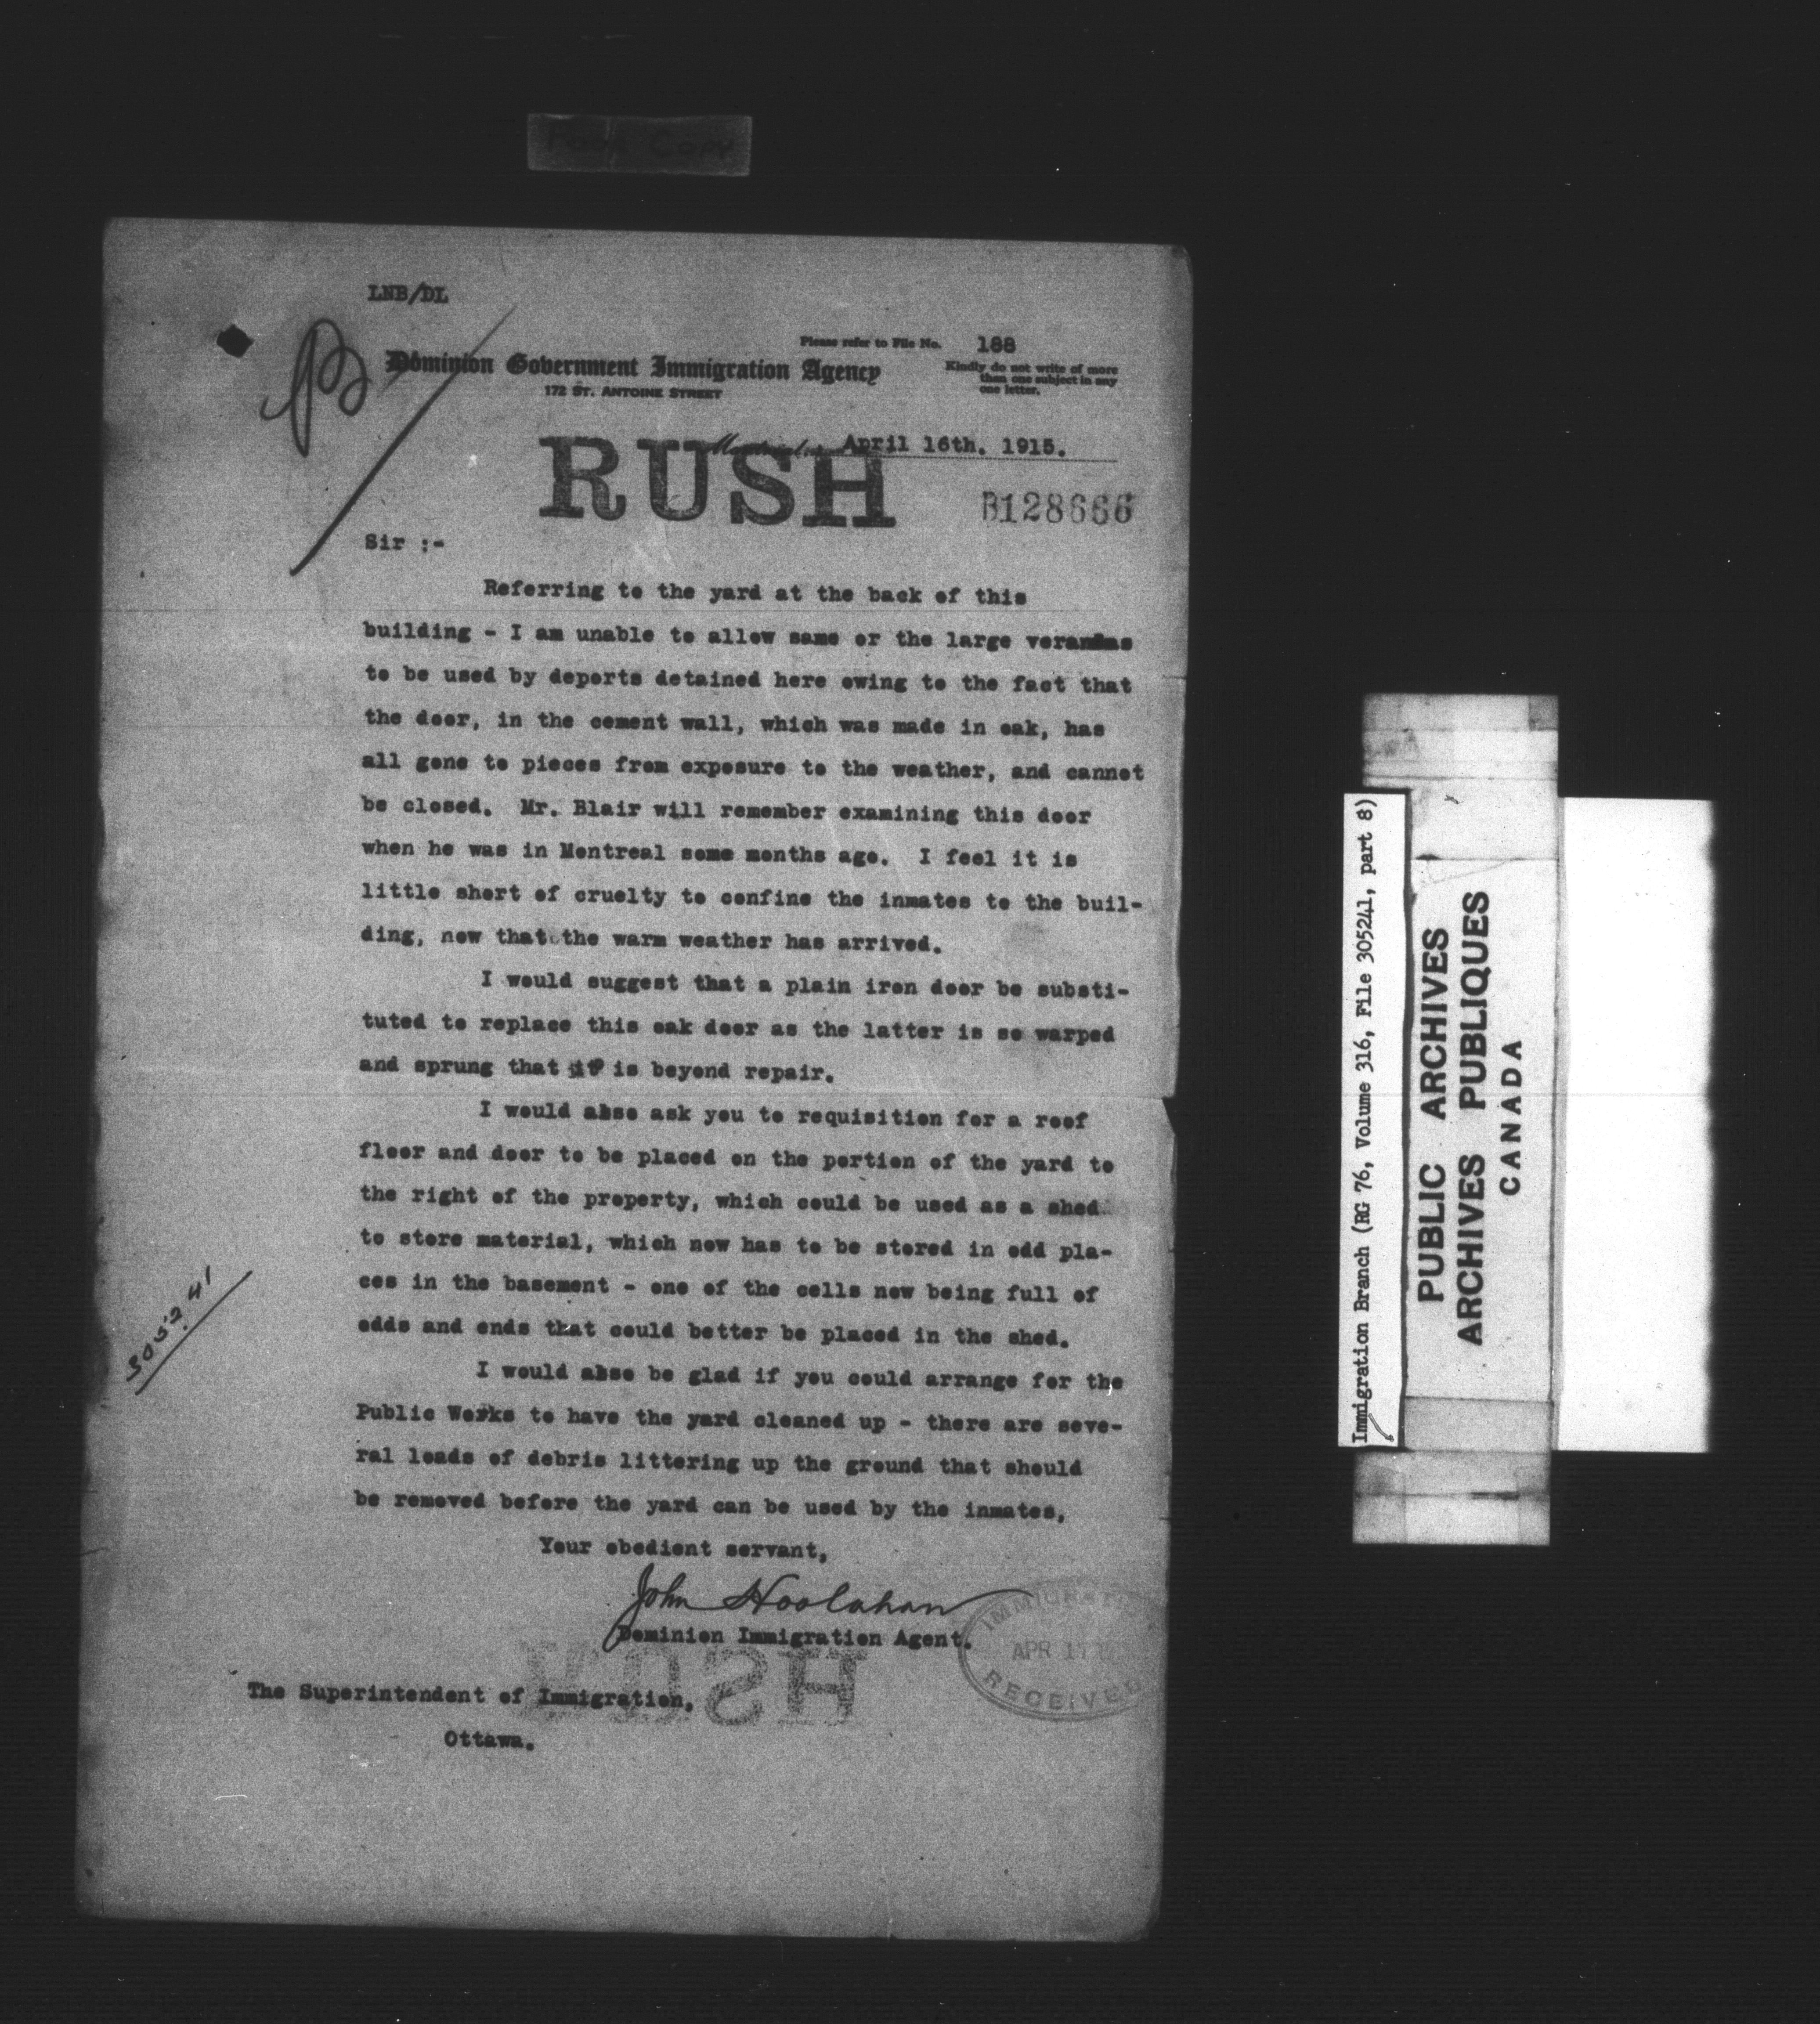 Poor Copy
LNB/DL
Please refer to File No. 188
Dominion Government Immigration Agency
Kindly do not write of more
than one subject in any
one letter.
172 ST. ANTOINE STREET
Montreal, April 16th. 1915.
RUSH
B128666
Sir :-
Referring to the yard at the back of this
building - I am unable to allow same or the large verandas
to be used by deports detained here owing to the fact that
the door, in the cement wall, which was made in oak, has
all gone to pieces from exposure to the weather, and cannot
be closed. Mr. Blair will remember examining this door
when he was in Montreal some months ago. I feel it is
little short of cruelty to confine the inmates to the buil-
ding, now that the warm weather has arrived.
I would suggest that a plain iron door be substi-
tuted to replace this oak door as the latter is so warped
and sprung that it is beyond repair.
I would also ask you to requisition for a roof
floor and door to be placed on the portion of the yard to
the right of the property, which could be used as a shed
to store material, which now has to be stored in odd pla-
ces in the basement - one of the cells now being full of
odds and ends that could better be placed in the shed.
305241
I would also be glad if you could arrange for the
Public Works to have the yard cleaned up - there are seve-
ral loads of debris littering up the ground that should
be removed before the yard can be used by the inmates,
Your obedient servant,
John Hoolahan
Dominion Immigration Agent.
IMMIGRATION
APR 17
RECEIVED
RUSH
The Superintendent of Immigration,
Ottawa.
Immigration Branch (RG 76, Volume 316, File 305241, part 8)
PUBLIC ARCHIVES
ARCHIVES PUBLIQUES
CANADA